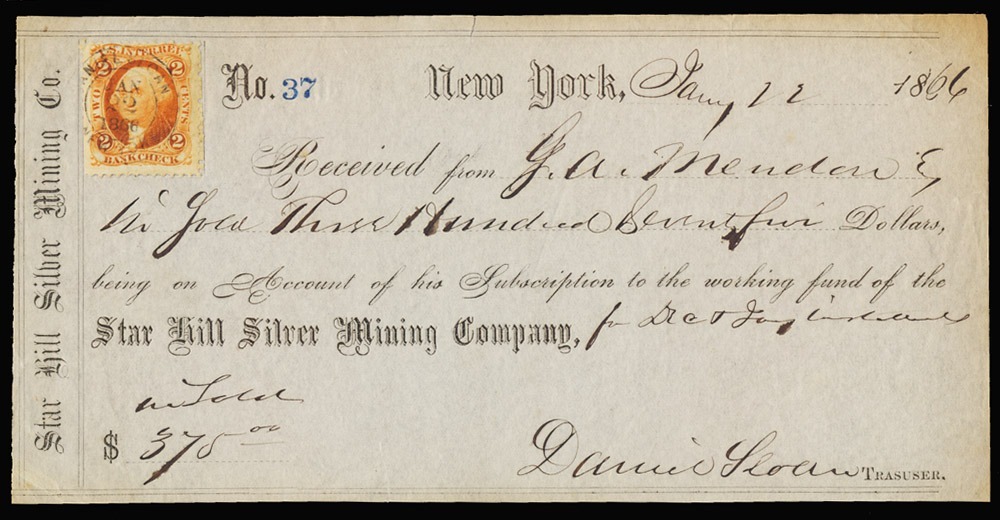 Star Hill Silver Mining Co.
U.S. INTER. REV.
2 2
TWO CENTS
JAN
1866
2 2
BANK CHECK
No. 37 New York, Jany 12 1866
Received from G. A. Mendon
in Gold Three Hundred Seventy five Dollars,
being on Account of his Subscription to the working fund of the
Star Hill Silver Mining Company, for Dec & Jany
in Gold
$ 375 00
Daniel Sloan TRASUSER.